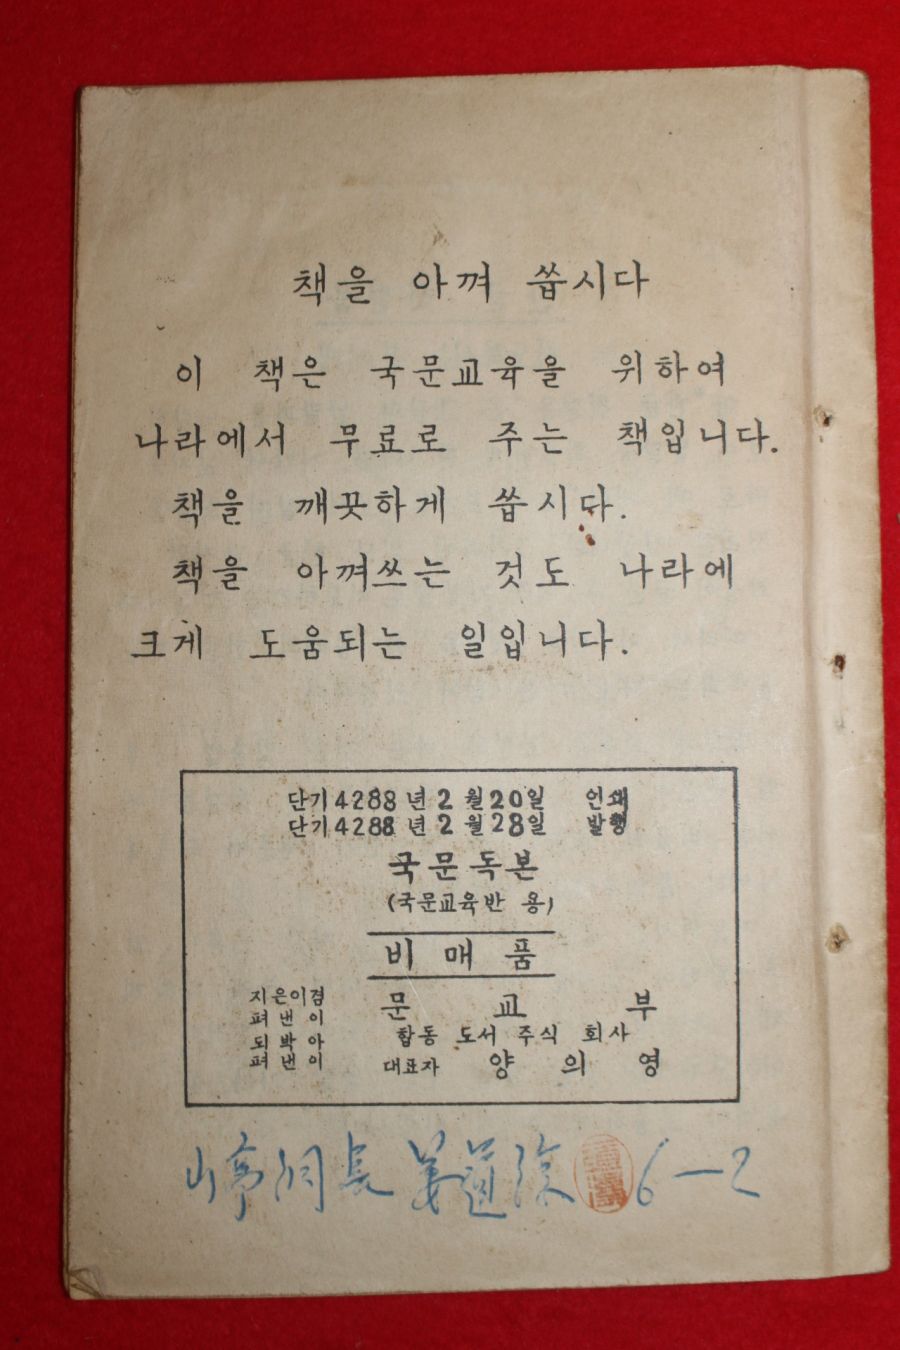 책을 아껴 씁시다
이 책은 국문교육을 위하여
나라에서 무료로 주는 책입니다.
책을 깨끗하게 씁시다.
책을 아껴쓰는 것도 나라에
크게 도움되는 일입니다.
단기4288년 2월20일 인쇄
단기4288년 2월28일 발행
국문독본
(국문교육반 용)
비매품
지은이겸
펴낸이 문교부
되박아 합동 도서 주식 회사
펴낸이 대표자 양의영
山亭洞長 姜道 6-2